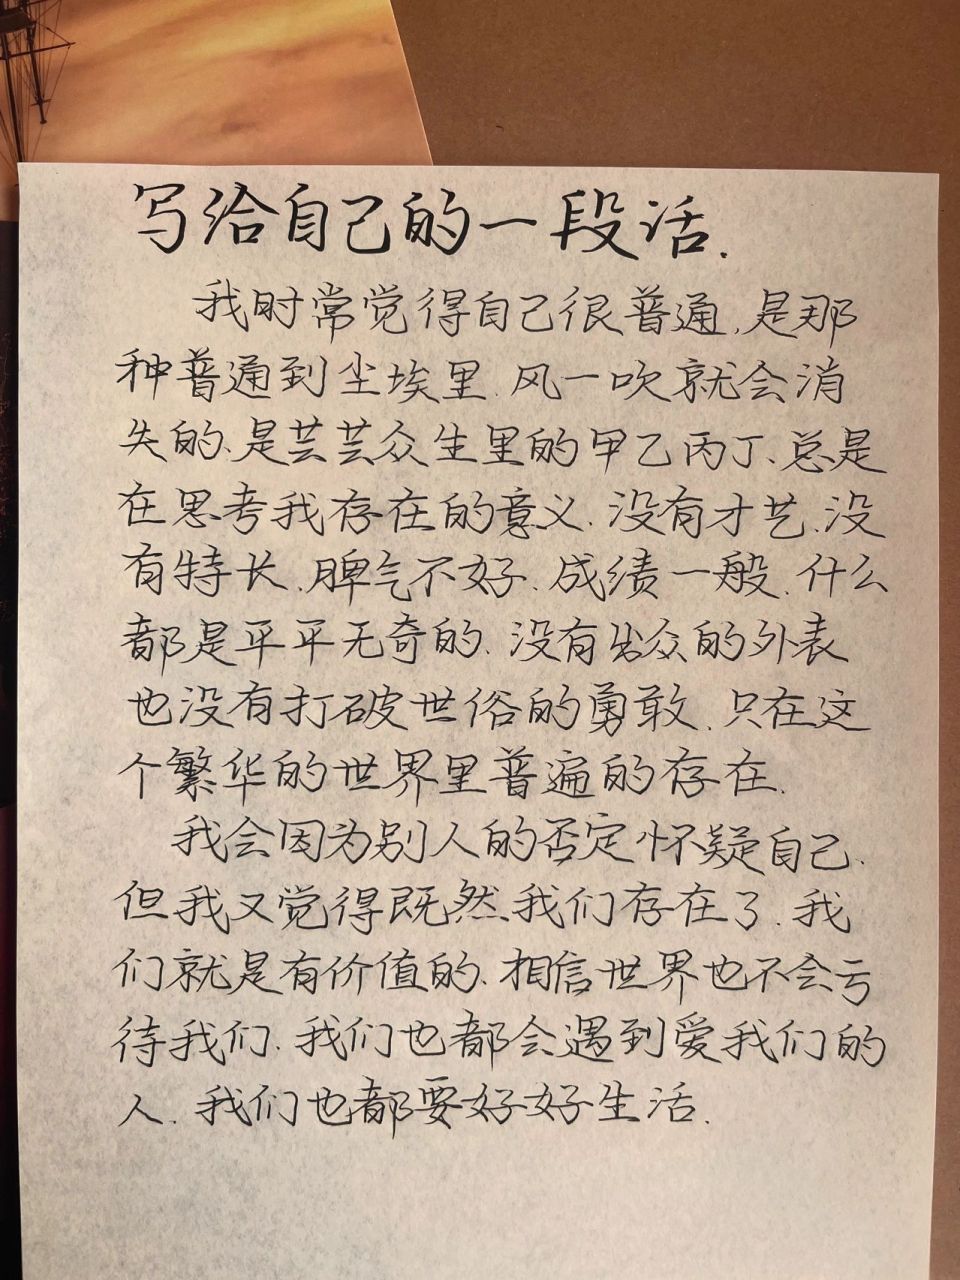 写给自己的一段话.
我时常觉得自己很普通,是那
种普通到尘埃里.风一吹就会消
失的.是芸芸众生里的甲乙丙丁.总是
在思考我存在的意义.没有才艺.没
有特长.脾气不好.成绩一般.什么
都是平平无奇的.没有出众的外表
也没有打破世俗的勇敢.只在这
个繁华的世界里普遍的存在.
我会因为别人的否定怀疑自己.
但我又觉得既然我们存在了.我
们就是有价值的.相信世界也不会亏
待我们.我们也都会遇到爱我们的
人.我们也都要好好生活.